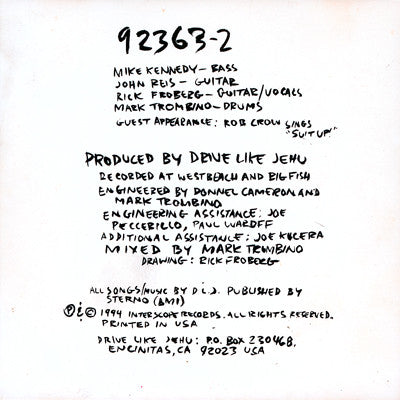 92363-2
MIKE KENNEDY- BASS
JOHN REIS- GUITAR
RICK FROBERG- GUITAR/VOCALS
MARK TROMBINO- DRUMS
GUEST APPEARANCE: ROB CROW SINGS
"SUIT UP!"
PRODUCED BY DRIVE LIKE JEHU
RECORDED AT WESTBEACH AND BIG FISH
ENGINEERED BY DONNEL CAMERON AND
MARK TROMBINO
ENGINEERING ASSISTANCE: JOE
PECCERILLO, PAUL WAROFF
ADDITIONAL ASSISTANCE: JOE KUCERA
MIXED BY MARK TROMBINO
DRAWING: RICK FROBERG
ALL SONGS/MUSIC BY D.L.J. PUBLISHED BY
STERNO (BMI)
℗ & © 1994 INTERSCOPE RECORDS. ALL RIGHTS RESERVED.
PRINTED IN USA
DRIVE LIKE JEHU: P.O. BOX 230468.
ENCINITAS, CA 92023 USA